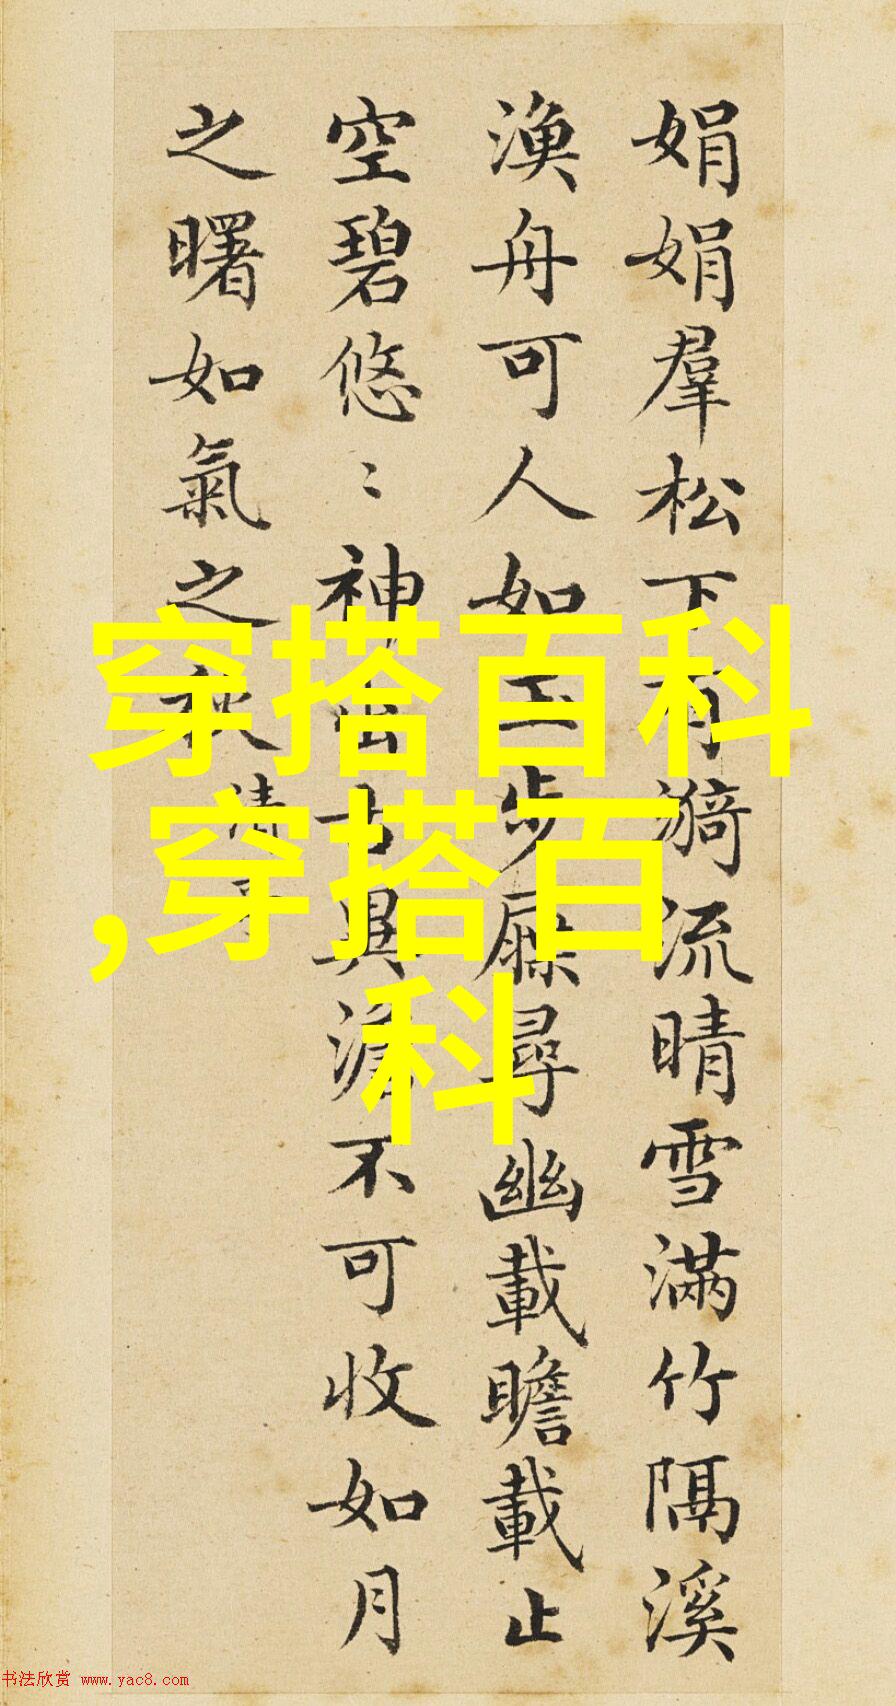 娟娟羣松下有漪流晴雪滿竹隔溪
漁舟可人如玉步屧尋幽載瞻載止
空碧悠〻神出古異澹不可收如月
之曙如氣之秋清
穿搭百科
,穿搭百
科
书法欣赏 www.yac8.com